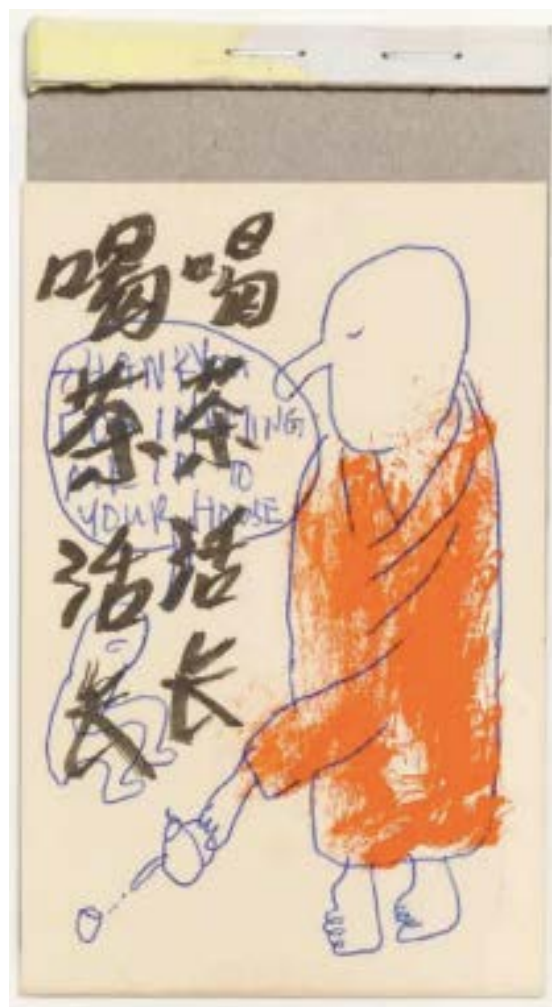 喝茶活长
喝茶活长
THANK YOU
INVITING
TO
YOUR HOUSE